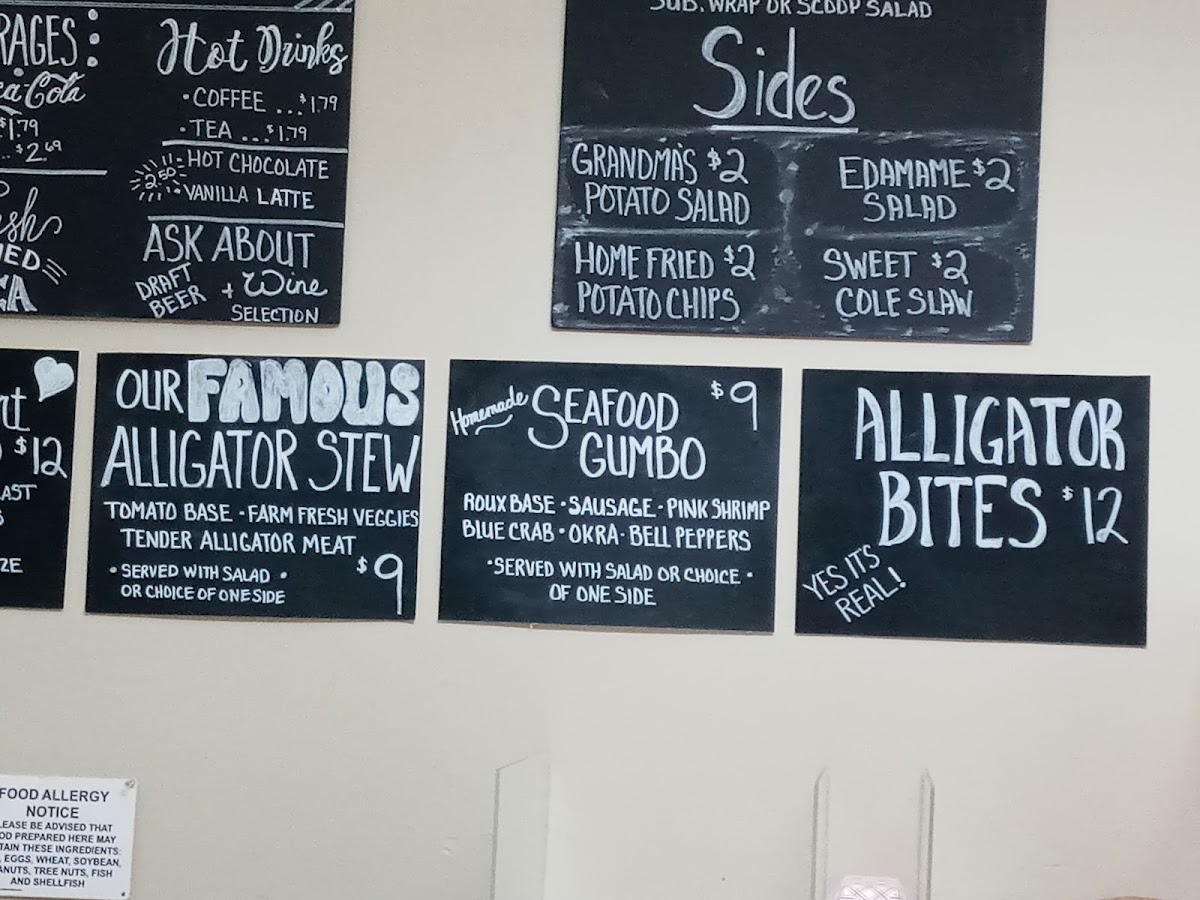 RAGES:
Ca-Cola
$1.79
.. $2.69
sh
IED
CA
Hot Drinks
• COFFEE ... $1.79
• TEA ... $1.79
2.50
HOT CHOCOLATE
VANILLA LATTE
ASK ABOUT
DRAFT
BEER
+ Wine
SELECTION
SUB, WRAP OR SCOOP SALAD
Sides
GRANDMA'S $2
POTATO SALAD
EDAMAME $2
SALAD
HOME FRIED $2
POTATO CHIPS
SWEET $2
COLE SLAW
rt
$12
AST
ZE
OUR FAMOUS
ALLIGATOR STEW
TOMATO BASE • FARM FRESH VEGGIES
TENDER ALLIGATOR MEAT
• SERVED WITH SALAD •
OR CHOICE OF ONE SIDE
$9
Homemade SEAFOOD
GUMBO
$9
ROUX BASE • SAUSAGE • PINK SHRIMP
BLUE CRAB • OKRA • BELL PEPPERS
• SERVED WITH SALAD OR CHOICE •
OF ONE SIDE
ALLIGATOR
BITES $12
YES IT'S
REAL!
FOOD ALLERGY
NOTICE
LEASE BE ADVISED THAT
OD PREPARED HERE MAY
TAIN THESE INGREDIENTS:
, EGGS, WHEAT, SOYBEAN,
ANUTS, TREE NUTS, FISH
AND SHELLFISH